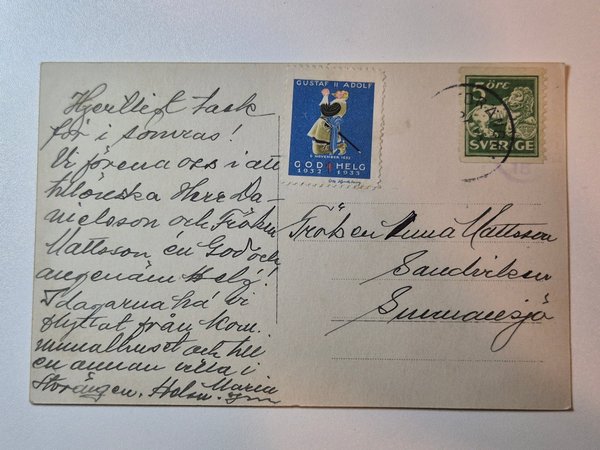 Hjertligt tack
för i somras!
Vi förena oss i att
tillönska Herr Da-
nielsson och Fröken
Mattsson en God och
angenäm Helg!
I dagarna ha vi
flyttat från Kom-
munalhuset och till
en annan villa i
Storängen. Maria
GUSTAF II ADOLF
6 NOVEMBER 1632
GOD HELG
1932 1933
5 ÖRE
SVERIGE
Fröken Anna Mattsson
Sandviken